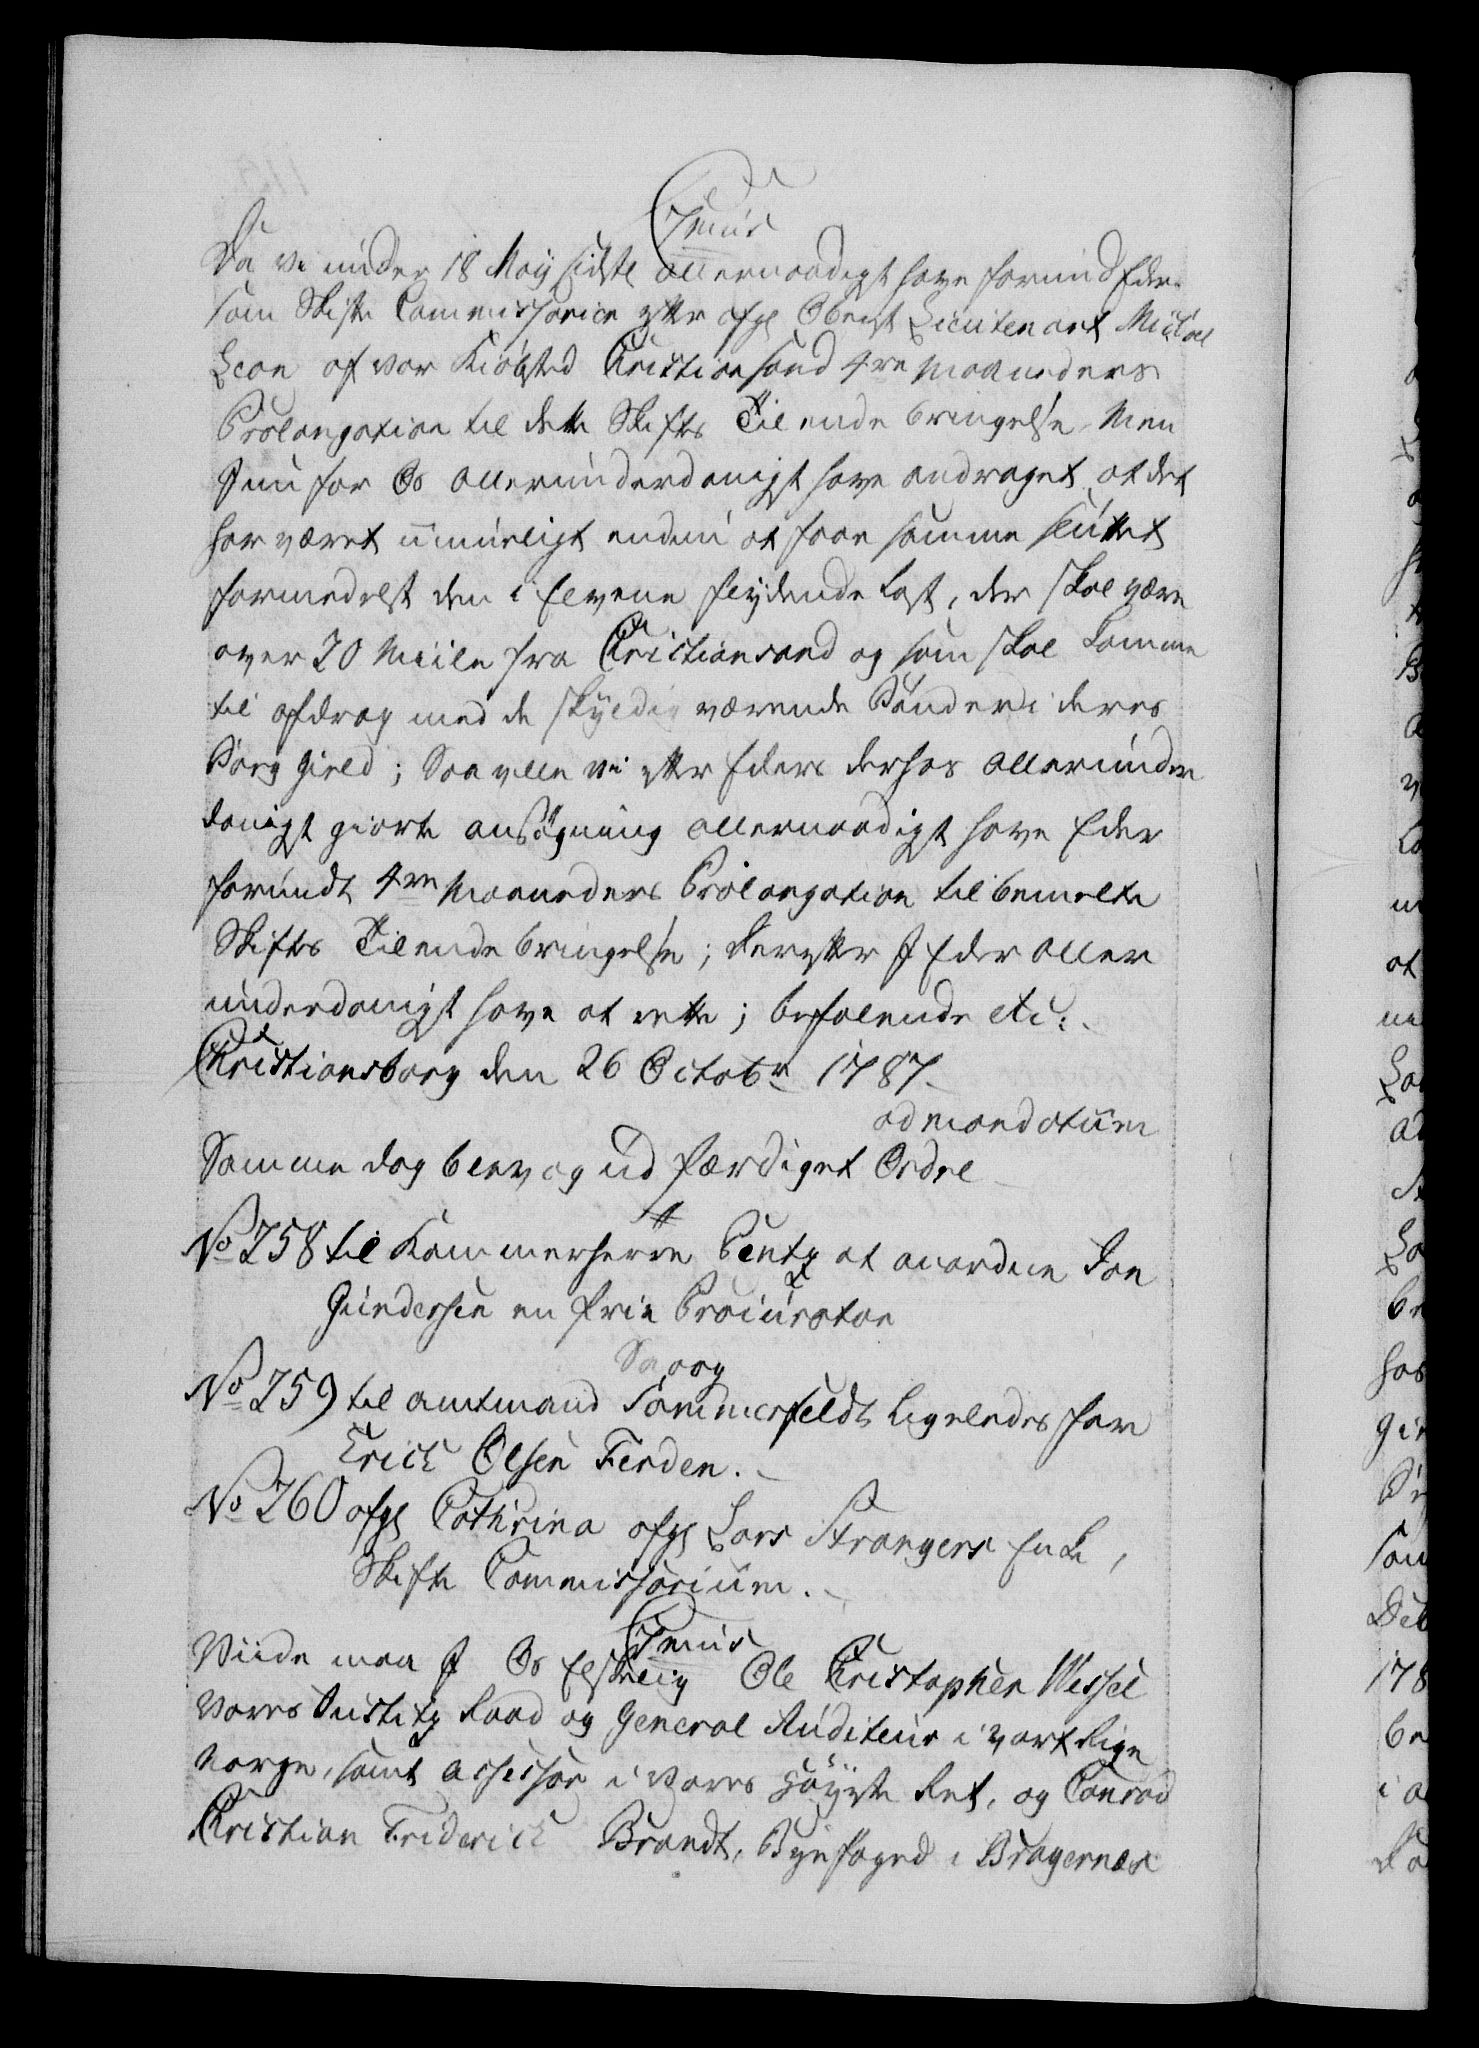 C7mus
Da vi under 18 Maij sidstl. allernaadigst have forundt Eder
som Skifte Commissarier efter afg: Obrist Lieutenant Michael
Leon af vor Kiøbsted Christiansand 4re Maaneders
Prolongation til dette Skiftes Tilendebringelse, Men
I nu for Os allerunderdanigst have andraget, at det
har været umueligt endnu at faae samme sluttet
formedelst den i Elvene flydende Last, der skal være
over 20 Miile fra Christiansand og som skal komme
til afdrag med de skyldig værende Bønder i deres
Borg Gield; Saa ville vi efter Eders derhos allerunder
danigst giorte ansøgning allernaadigst have Eder
forundt 4re Maaneders Prolongation til bemelte
Skiftes Tilendebringelse; derefter I Eder aller
underdanigst have at rette; befalende etc:
Christiansborg den 26 Octobr 1787
ad mandatum
Samme dag blev og udfærdiget Ordre
No 258 til Kammerherre Pentz at anordne Jon
Gundersen en frie Procurator
No 259 til Amtmand Sommerfeldt ligeledes for
Erich Olsen Ferden.
No 260 afg: Cathrina afg: Lars Strangers Enke,
Skifte Commissorium.
C7mus
Viide maa I Os Elskelig Ole Christopher Wessel
Vores Justitz Raad og General Auditeur i vort Rige
Norge, samt Assessor i Vores Høyeste Ret, og Conrad
Christian Friderich Brandt, Byefoged i Bragernæs